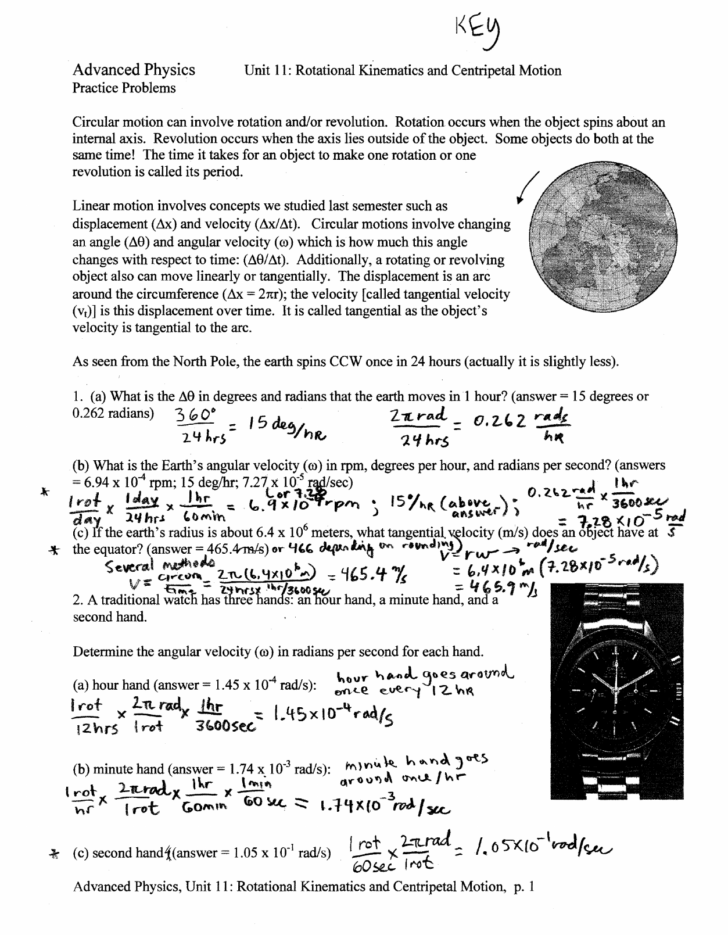 KEY
Advanced Physics Unit 11: Rotational Kinematics and Centripetal Motion
Practice Problems
Circular motion can involve rotation and/or revolution. Rotation occurs when the object spins about an
internal axis. Revolution occurs when the axis lies outside of the object. Some objects do both at the
same time! The time it takes for an object to make one rotation or one
revolution is called its period.
Linear motion involves concepts we studied last semester such as
displacement (Δx) and velocity (Δx/Δt). Circular motions involve changing
an angle (Δθ) and angular velocity (ω) which is how much this angle
changes with respect to time: (Δθ/Δt). Additionally, a rotating or revolving
object also can move linearly or tangentially. The displacement is an arc
around the circumference (Δx = 2πr); the velocity [called tangential velocity
(vₜ)] is this displacement over time. It is called tangential as the object's
velocity is tangential to the arc.
As seen from the North Pole, the earth spins CCW once in 24 hours (actually it is slightly less).
1. (a) What is the Δθ in degrees and radians that the earth moves in 1 hour? (answer = 15 degrees or
0.262 radians) 360°/24 hrs = 15 deg/hR 2π rad/24 hrs = 0.262 rads/hR
(b) What is the Earth's angular velocity (ω) in rpm, degrees per hour, and radians per second? (answers
= 6.94 x 10⁻⁴ rpm; 15 deg/hr; 7.27 x 10⁻⁵ rad/sec)
or 7.28
* 1 rot/day x 1 day/24 hrs x 1 hr/60 min = 6.9 x 10⁻⁴ rpm ; 15°/hR (above answer) ; 0.262 rad/hr x 1 hr/3600 sec
= 7.28 x 10⁻⁵ rad/s
(c) If the earth's radius is about 6.4 x 10⁶ meters, what tangential velocity (m/s) does an object have at
* the equator? (answer = 465.4 m/s) or 466 depending on rounding) V = rω → rad/sec
Several methods
V = circum/time = 2π(6.4x10⁶ m)/24 hrs x 1hr/3600 sec = 465.4 m/s = 6.4 x 10⁶ m (7.28x10⁻⁵ rad/s)
= 465.9 m/s
2. A traditional watch has three hands: an hour hand, a minute hand, and a
second hand.
Determine the angular velocity (ω) in radians per second for each hand.
(a) hour hand (answer = 1.45 x 10⁻⁴ rad/s): hour hand goes around
once every 12 hR
1 rot/12 hrs x 2π rad/1 rot x 1hr/3600 sec = 1.45 x 10⁻⁴ rad/s
(b) minute hand (answer = 1.74 x 10⁻³ rad/s): minute hand goes
around once/hr
1 rot/hr x 2π rad/1 rot x 1 hr/60 min x 1 min/60 sec = 1.74 x 10⁻³ rad/sec
* (c) second hand (answer = 1.05 x 10⁻¹ rad/s) 1 rot/60 sec x 2π rad/1 rot = 1.05 x 10⁻¹ rad/sec
Advanced Physics, Unit 11: Rotational Kinematics and Centripetal Motion, p. 1